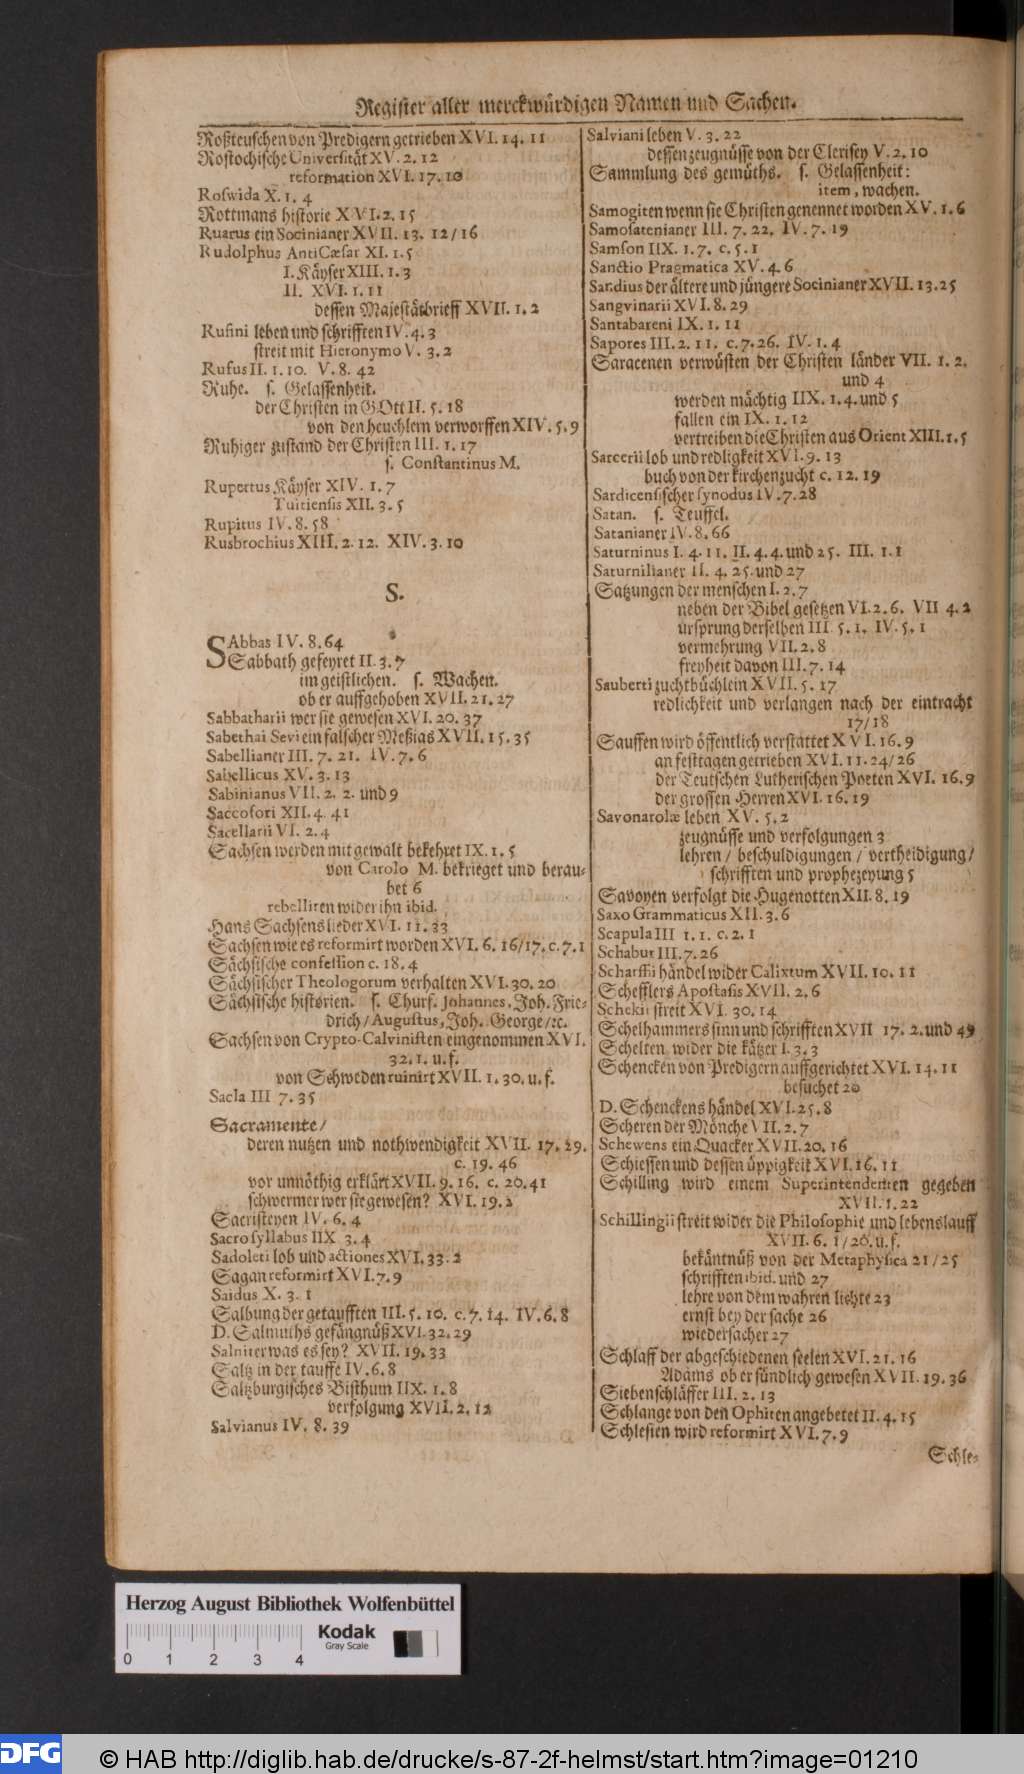 Register aller merckwürdigen Namen und Sachen.
Roßteuschen von Predigern getrieben XVI. 14. 11
Rostochische Universität XV. 2. 12
reformation XVI. 17. 10
Roswida X. 1. 4
Rottmans historie XVI. 2. 15
Ruarus ein Socinianer XVII. 13. 12/16
Rudolphus AntiCæsar XI. 1. 5
I. Käyser XIII. 1. 3
II. XVI. 1. 11
dessen Majestätbrieff XVII. 1. 2
Rufini leben und schrifften IV. 4. 3
streit mit Hieronymo V. 3. 2
Rufus II. 1. 10. V. 8. 42
Ruhe. s. Gelassenheit.
der Christen in GOtt II. 5. 18
von den heuchlern verworffen XIV. 5. 9
Ruhiger zustand der Christen III. 1. 17
s. Constantinus M.
Rupertus Käyser XIV. 1. 7
Tuitiensis XII. 3. 5
Rupitus IV. 8. 58
Rusbrochius XIII. 2. 12. XIV. 3. 10
S.
SAbbas IV. 8. 64
Sabbath gefeyret II. 3. 7
im geistlichen. s. Wachen.
ob er auffgehoben XVII. 21. 27
Sabbatharii wer sie gewesen XVI. 20. 37
Sabethai Sevi ein falscher Meßias XVII. 15. 35
Sabellianer III. 7. 21. IV. 7. 6
Sabellicus XV. 3. 13
Sabinianus VII. 2. 2. und 9
Saccofori XII. 4. 41
Sacellarii VI. 2. 4
Sachsen werden mit gewalt bekehret IX. 1. 5
von Carolo M. bekrieget und berau-
bet 6
rebelliren wider ihn ibid.
Hans Sachsens lieder XVI. 11. 33
Sachsen wie es reformirt worden XVI. 6. 16/17. c. 7. 1
Sächsische confession c. 18. 4
Sächsischer Theologorum verhalten XVI. 30. 20
Sächsische historien. s. Churf. Johannes, Joh. Frie-
drich/ Augustus, Joh. George/ ꝛc.
Sachsen von Crypto-Calvinisten eingenommen XVI.
32. 1. u. f.
von Schweden ruinirt XVII. 1. 30. u. f.
Sacla III 7. 35
Sacramente/
deren nutzen und nothwendigkeit XVII. 17. 29.
c. 19. 46
vor unnöthig erklärt XVII. 9. 16. c. 20. 41
schwermer wer sie gewesen? XVI. 19. 2
Sacristeyen IV. 6. 4
Sacro syllabus IIX 3. 4
Sadoleti lob und actiones XVI. 33. 2
Sagan reformirt XVI. 7. 9
Saidus X. 3. 1
Salbung der getaufften III. 5. 10. c. 7. 14. IV. 6. 8
D. Salmuths gefängnüß XVI. 32. 29
Salniter was es sey? XVII. 19. 33
Saltz in der tauffe IV. 6. 8
Saltzburgisches Bisthum IIX. 1. 8
verfolgung XVII. 2. 12
Salvianus IV. 8. 39
Salviani leben V. 3. 22
dessen zeugnüsse von der Clerisey V. 2. 10
Sammlung des gemüths. s. Gelassenheit:
item, wachen.
Samogiten wenn sie Christen genennet worden XV. 1. 6
Samosatenianer III. 7. 22. IV. 7. 19
Samson IIX. 1. 7. c. 5. 1
Sanctio Pragmatica XV. 4. 6
Sandius der ältere und jüngere Socinianer XVII. 13. 25
Sangvinarii XVI. 8. 29
Santabareni IX. 1. 11
Sapores III. 2. 11. c. 7. 26. IV. 1. 4
Saracenen verwüsten der Christen länder VII. 1. 2.
und 4
werden mächtig IIX. 1. 4. und 5
fallen ein IX. 1. 12
vertreiben die Christen aus Orient XIII. 1. 5
Sarcerii lob und redligkeit XVI. 9. 13
buch von der kirchenzucht c. 12. 19
Sardicensischer synodus IV. 7. 28
Satan. s. Teuffel.
Satanianer IV. 8. 66
Saturninus I. 4. 11. II. 4. 4. und 25. III. 1. 1
Saturnilianer II. 4. 25. und 27
Satzungen der menschen I. 2. 7
neben der Bibel gesetzen VI. 2. 6. VII 4. 2
ursprung derselben III. 5. 1. IV. 5. 1
vermehrung VII. 2. 8
freyheit davon III. 7. 14
Sauberti zuchtbüchlein XVII. 5. 17
redlichkeit und verlangen nach der eintracht
17/18
Sauffen wird öffentlich verstattet XVI. 16. 9
an festtagen getrieben XVI. 11. 24/26
der Teutschen Lutherischen Poeten XVI. 16. 9
der grossen Herren XVI. 16. 19
Savonarolæ leben XV. 5. 2
zeugnüsse und verfolgungen 3
lehren/ beschuldigungen/ vertheidigung/
schrifften und prophezeyung 5
Savoyen verfolgt die Hugenotten XII. 8. 19
Saxo Grammaticus XII. 3. 6
Scapula III 1. 1. c. 2. 1
Schabur III. 7. 26
Scharffii händel wider Calixtum XVII. 10. 11
Schefflers Apostasis XVII. 2. 6
Schekii streit XVI. 30. 14
Schelhammers sinn und schrifften XVII 17. 2. und 49
Schelten wider die kätzer I. 3. 3
Schencken von Predigern auffgerichtet XVI. 14. 11
besuchet 20
D. Schenckens händel XVI. 25. 8
Scheren der Mönche VII. 2. 7
Schewens ein Quacker XVII. 20. 16
Schiessen und dessen üppigkeit XVI. 16. 11
Schilling wird einem Superintendenten gegeben
XVII. 1. 22
Schillingii streit wider die Philosophie und lebenslauff
XVII. 6. 1/20. u. f.
bekäntnüß von der Metaphysica 21/25
schrifften ibid. und 27
lehre von dem wahren liechte 23
ernst bey der sache 26
wiedersacher 27
Schlaff der abgeschiedenen seelen XVI. 21. 16
Adams ob er sündlich gewesen XVII. 19. 36
Siebenschläffer III. 2. 13
Schlange von den Ophiten angebetet II. 4. 15
Schlesien wird reformirt XVI. 7. 9
Schle-
Herzog August Bibliothek Wolfenbüttel
Kodak
Gray Scale
0 1 2 3 4
DFG
© HAB http://diglib.hab.de/drucke/s-87-2f-helmst/start.htm?image=01210